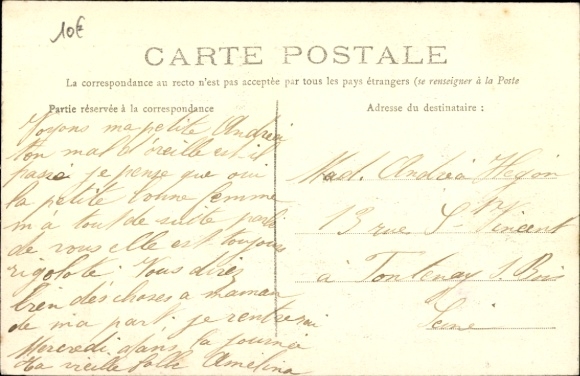 10€
CARTE POSTALE
La correspondance au recto n'est pas acceptée par tous les pays étrangers (se renseigner à la Poste
Partie réservée à la correspondance
Adresse du destinataire :
Voyons ma petite Andréa
ton mal d'oreille est il
passé je pense que oui
la petite bonne femme
m'a tout de suite parlé
de vous elle est toujours
rigolote. Vous direz
bien des choses a maman
de ma part je rentrerai
Mercredi dans la journée
Ta vieille folle Amelina
Mad. Andréa Hegon
13 rue St Vincent
à Fontenay s. Bois
Seine